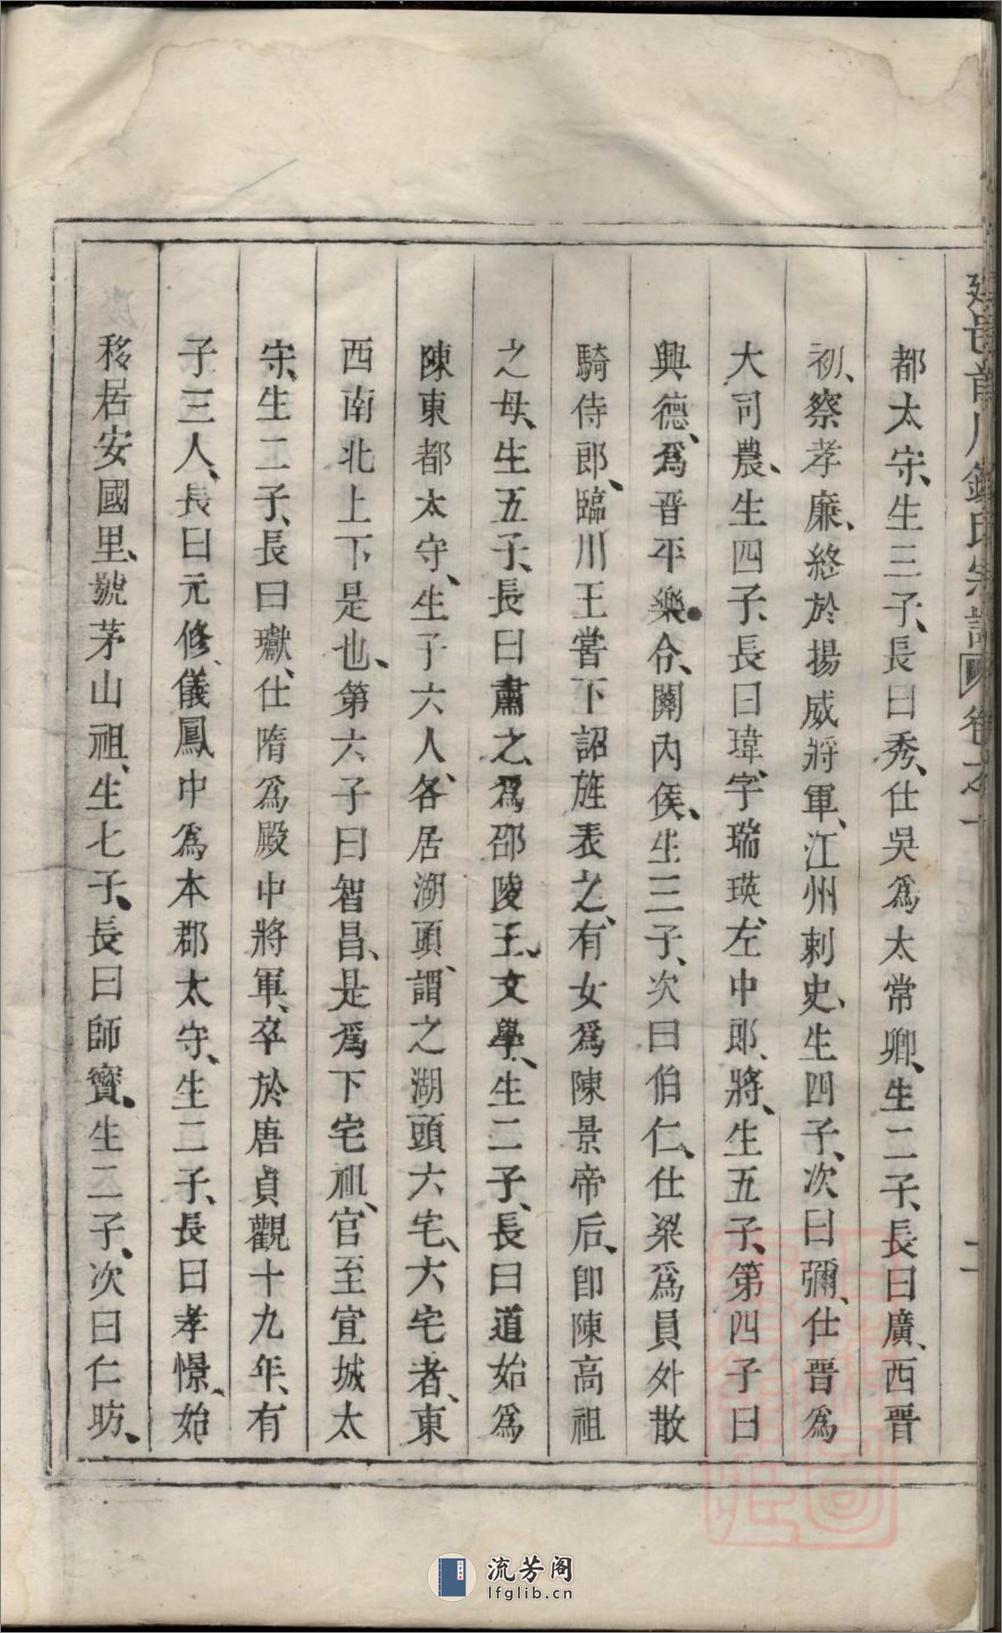 都太守、生三子、長曰秀、仕吳爲太常卿、生二子、長曰廣、西晋
初、察孝廉、終於揚威將軍、江州刺史、生四子、次曰彌、仕晋爲
大司農、生四子、長曰瑋、字瑞瑛、左中郎、將、生五子、第四子曰
興德、爲晋平樂令、關內侯、生三子、次曰伯仁、仕梁爲員外散
騎侍郎、臨川王嘗下詔旌表之、有女爲陳景帝后、卽陳高祖
之母、生五子、長曰肅之、爲邵陵王、文學、生二子、長曰道始爲
陳東都太守、生子六人、各居湖頭、謂之湖頭六宅、六宅者、東
西南北上下是也、第六子曰智昌、是爲下宅祖、官至宣城太
守、生二子、長曰瓛、仕隋爲殿中將軍、卒於唐貞觀十九年、有
子三人、長曰元修、儀鳳中爲本郡太守、生二子、長曰孝憬、始
移居安國里、號茅山祖、生七子、長曰師寳、生二子、次曰仁昉、
流芳阁
lfglib.cn